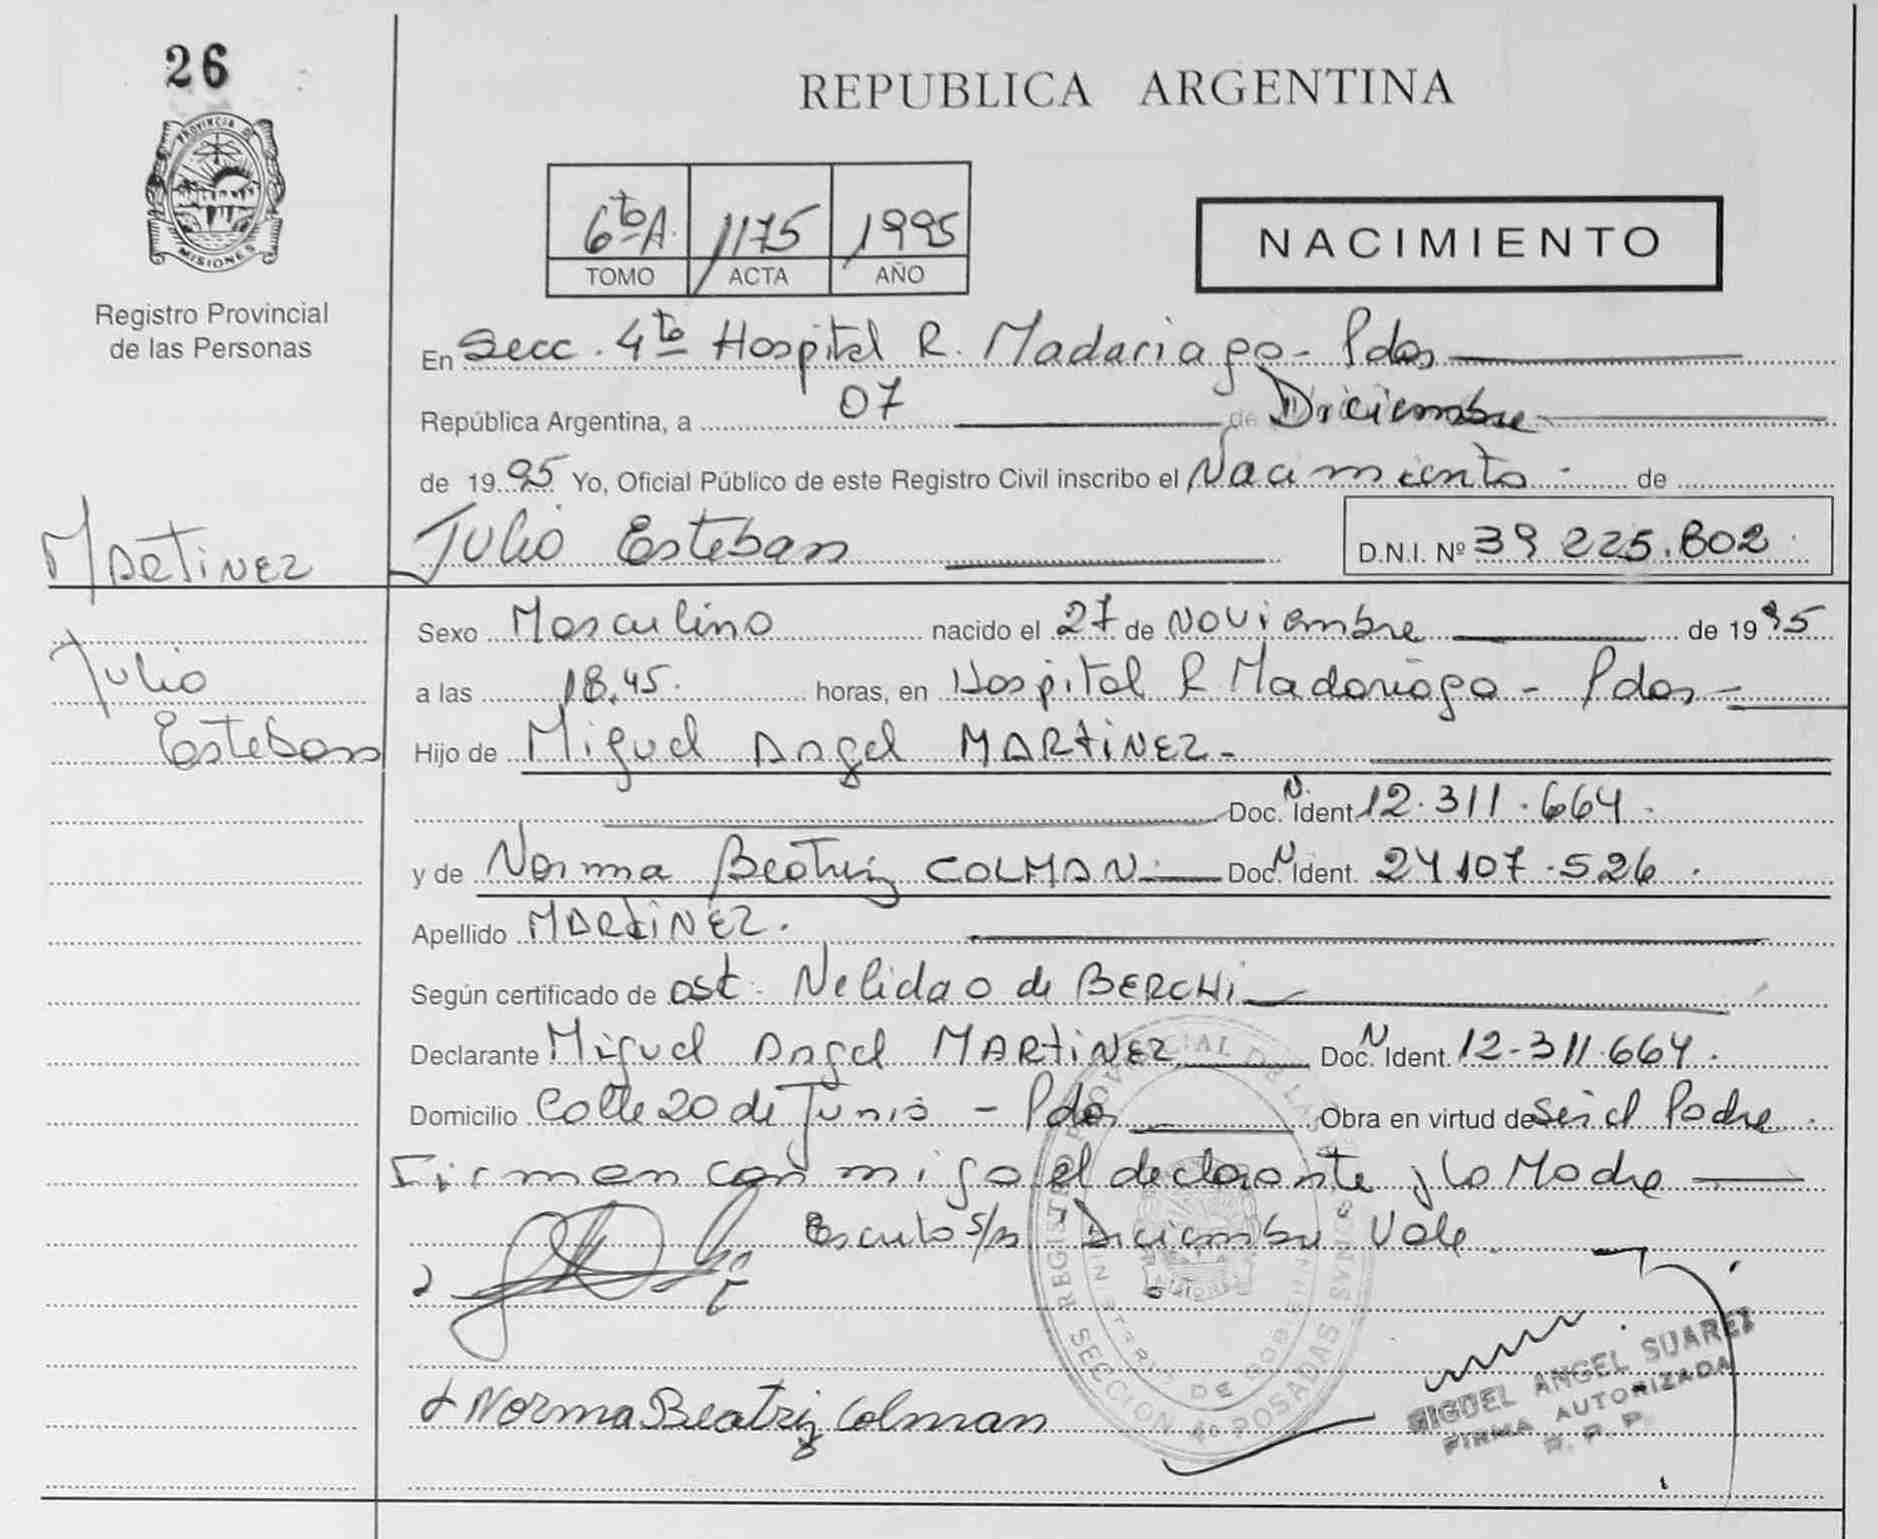 26
PROVINCIA DE
MISIONES
Registro Provincial
de las Personas
REPUBLICA ARGENTINA
6to A. 1175 1995
TOMO ACTA AÑO
NACIMIENTO
En Secc. 4ta Hospital R. Madariaga - Pdas
República Argentina, a 07 de Diciembre
de 1995 Yo, Oficial Público de este Registro Civil inscribo el Nacimiento - de
Julio Esteban D.N.I. Nº 39 225.802
MARTINEZ
Julio
Esteban
Sexo Masculino nacido el 27 de Noviembre de 1995
a las 18.45. horas, en Hospital R Madariaga - Pdas -
Hijo de Miguel Angel MARTINEZ -
Doc. N. Ident 12.311.664.
y de Norma Beatriz COLMAN - Doc. N Ident. 24107.526.
Apellido MARTINEZ.
Según certificado de Ost. Nelida O de BERCHI
Declarante Miguel Angel MARTINEZ Doc. N Ident. 12-311.664.
Domicilio Calle 20 de Junio - Pdas Obra en virtud de Ser el Padre.
Firman con migo el declarante y la Madre
Escrito s/r Diciembre Vale
Norma Beatriz Colman
REGISTRO PROVINCIAL DE LAS PERSONAS
MINISTERIO DE GOBIERNO
SECCION 4ª POSADAS
MIGUEL ANGEL SUAREZ
FIRMA AUTORIZADA
R. P. P.